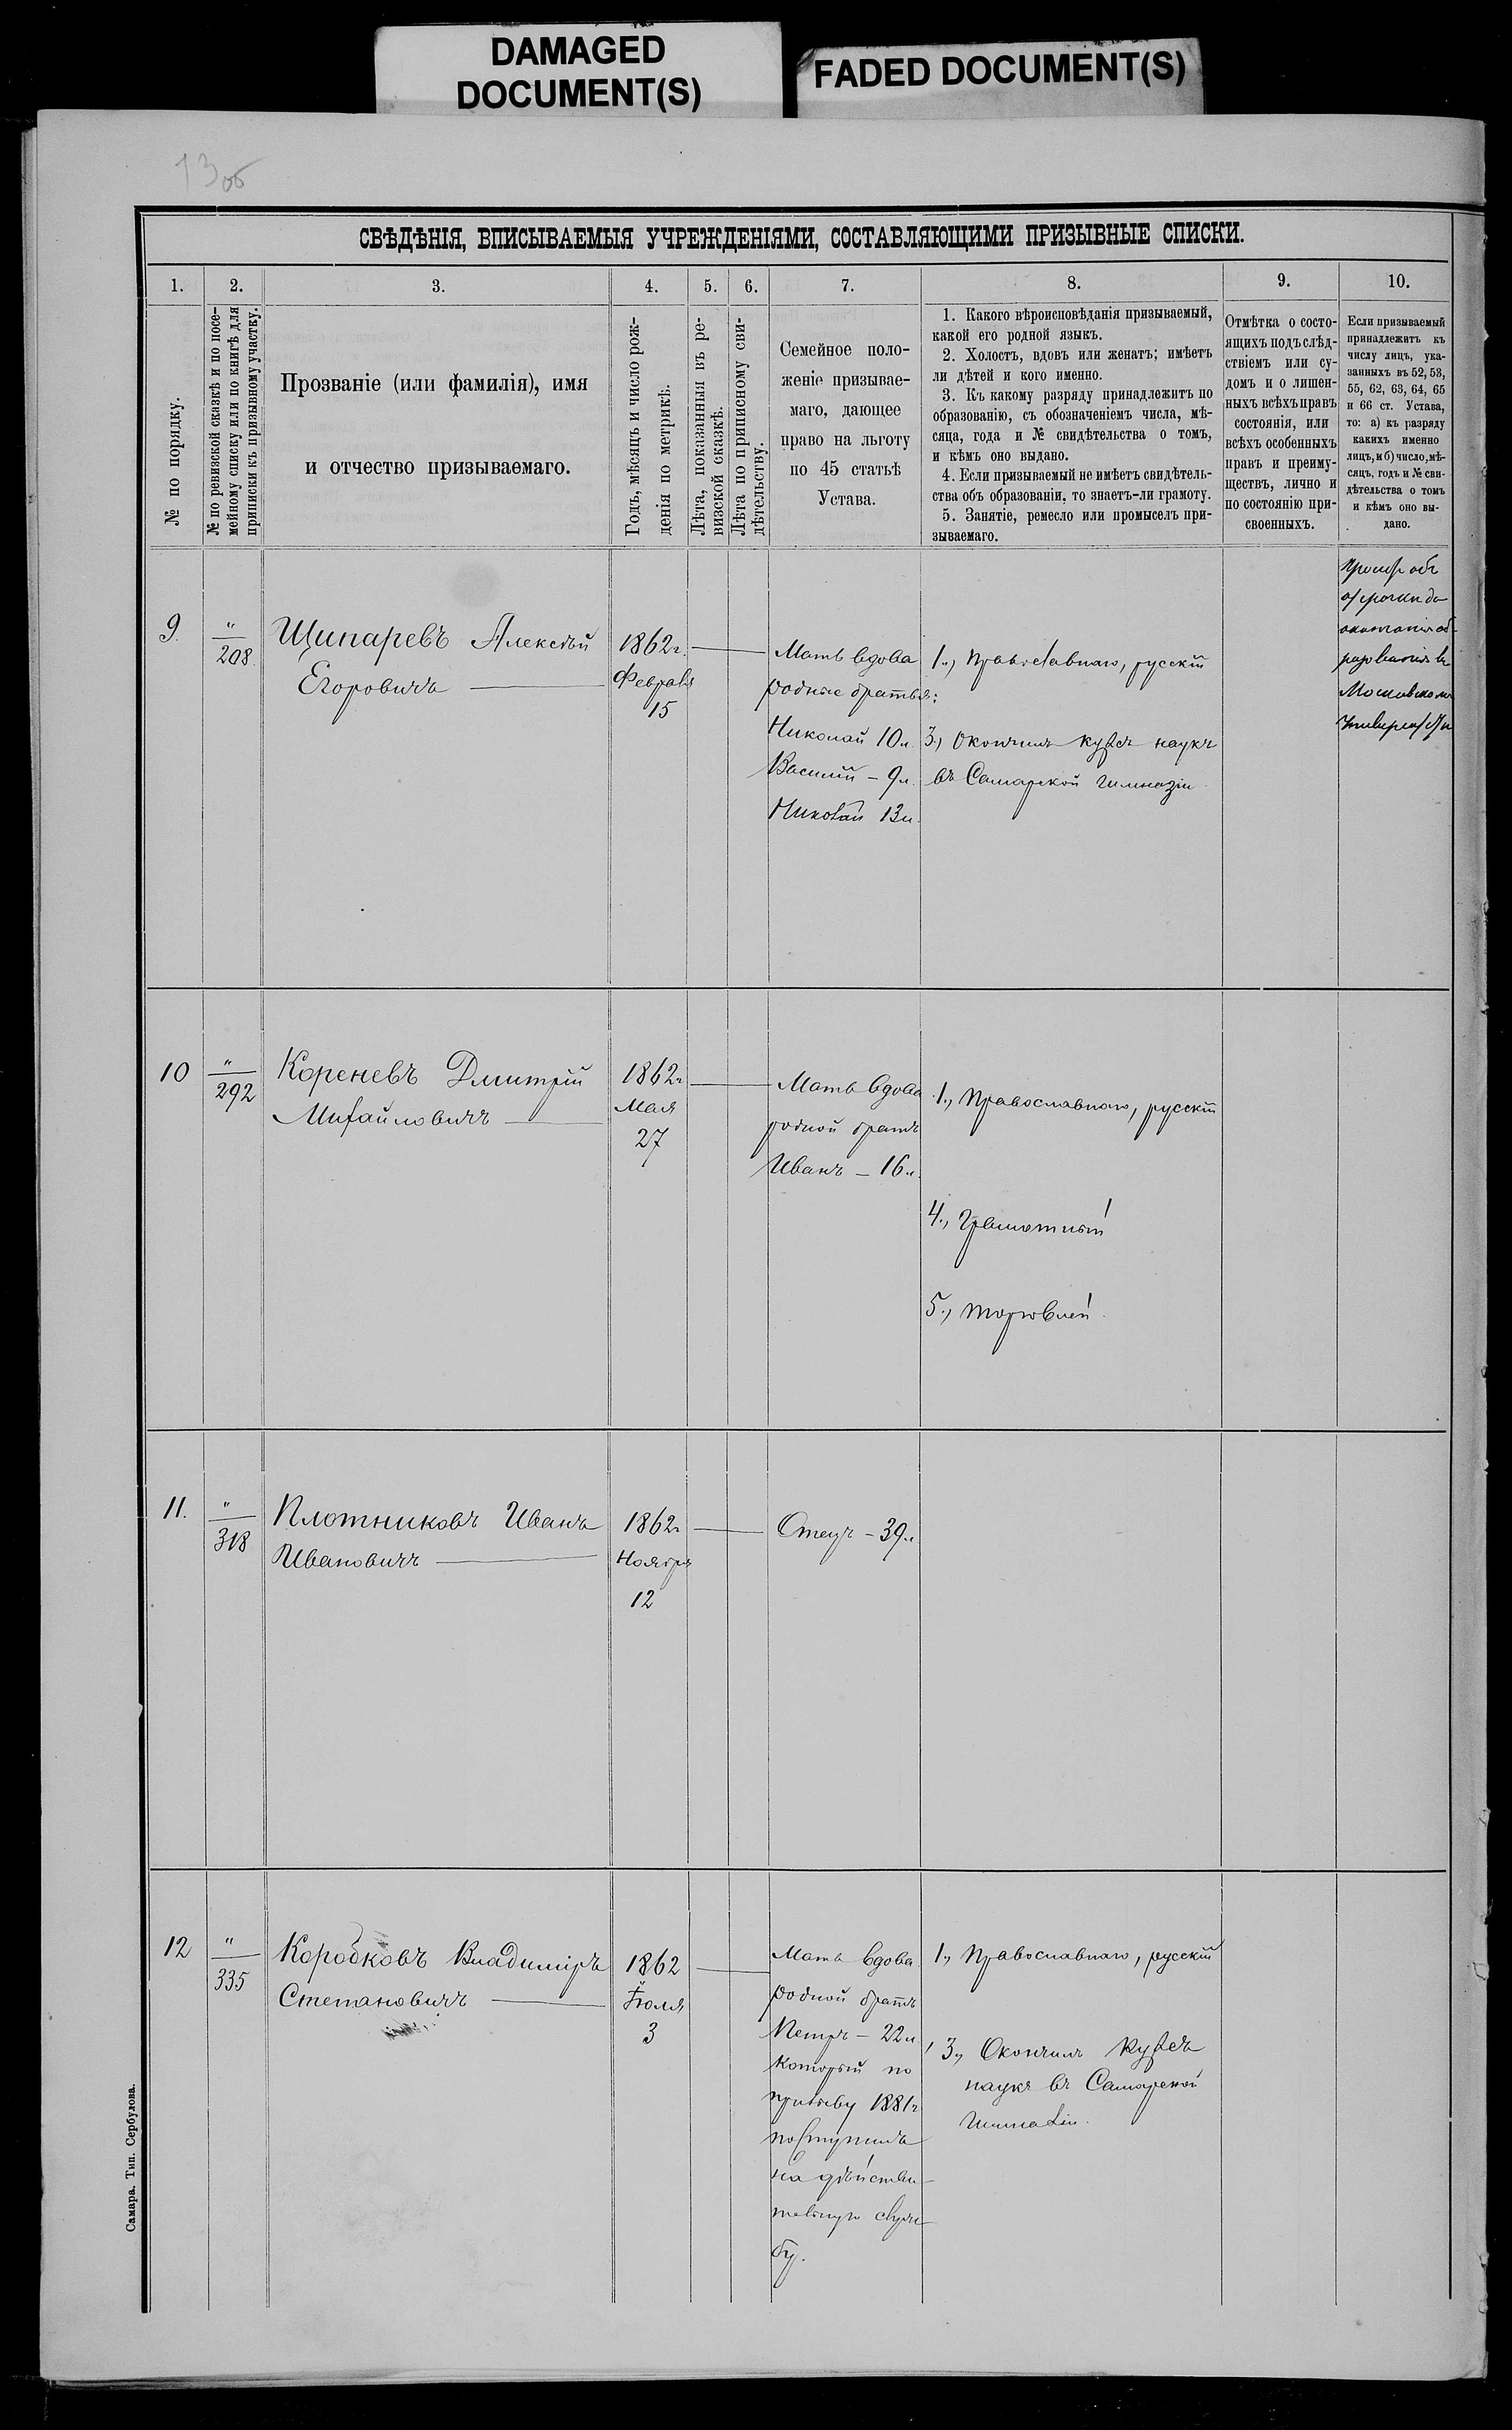 DAMAGED
DOCUMENT(S)
FADED DOCUMENT(S)
13 об
СВѢДѢНІЯ, ВПИСЫВАЕМЫЯ УЧРЕЖДЕНІЯМИ, СОСТАВЛЯЮЩИМИ ПРИЗЫВНЫЕ СПИСКИ.
1.
2.
3.
4.
5.
6.
7.
8.
9.
10.
№ по порядку.
№ по ревизской сказкѣ и по посе-
мейному списку или по книгѣ для
приписки къ призывному участку.
Прозваніе (или фамилія), имя
и отчество призываемаго.
Годъ, мѣсяцъ и число рож-
денія по метрикѣ.
Лѣта, показанныя въ ре-
визской сказкѣ.
Лѣта по приписному сви-
дѣтельству.
Семейное поло-
женіе призывае-
маго, дающее
право на льготу
по 45 статьѣ
Устава.
1. Какого вѣроисповѣданія призываемый,
какой его родной языкъ.
2. Холостъ, вдовъ или женатъ; имѣетъ
ли дѣтей и кого именно.
3. Къ какому разряду принадлежитъ по
образованію, съ обозначеніемъ числа, мѣ-
сяца, года и № свидѣтельства о томъ,
и кѣмъ оно выдано.
4. Если призываемый не имѣетъ свидѣтель-
ства объ образованіи, то знаетъ-ли грамоту.
5. Занятіе, ремесло или промыселъ при-
зываемаго.
Отмѣтка о состо-
ящихъ подъ слѣд-
ствіемъ или су-
домъ и о лишен-
ныхъ всѣхъ правъ
состоянія, или
всѣхъ особенныхъ
правъ и преиму-
ществъ, лично и
по состоянію при-
своенныхъ.
Если призываемый
принадлежитъ къ
числу лицъ, ука-
занныхъ въ 52, 53,
55, 62, 63, 64, 65
и 66 ст. Устава,
то: а) къ разряду
какихъ именно
лицъ, и б) число, мѣ-
сяцъ, годъ и № сви-
дѣтельства о томъ
и кѣмъ оно вы-
дано.
9.
"
208.
Щипаревъ Алексѣй
Егоровичъ
1862г.
Февраля
15
Мать вдова
родные братья:
Николай 10л.
Василій – 9л.
Николай 13л.
1., Православнаго, русскій
3., Окончилъ курсъ наукъ
въ Самарской гимназіи.
Просит объ
отсрочки до
окончанія об-
разованія въ
Московскомъ
Университетѣ
10
"
292
Кореневъ Дмитрій
Михайловичъ
1862г
Мая
27
Мать вдова
родной братъ
Иванъ – 16л.
1., Православнаго, русскій
4., Грамотный
5., Торговлей.
11.
"
318
Плотниковъ Иванъ
Ивановичъ
1862г
Ноября
12
Отецъ – 39л.
12
"
335
Коробковъ Владиміръ
Степановичъ
1862
Іюля
3
Мать вдова
родной братъ
Петръ – 22л
который по
призыву 1881г
поступилъ
на дѣйстви-
тельную служ
бу.
1., Православнаго, русскій
3., Окончилъ курсъ
наукъ въ Самарской
гимназіи.
Самара. Тип. Сербулова.